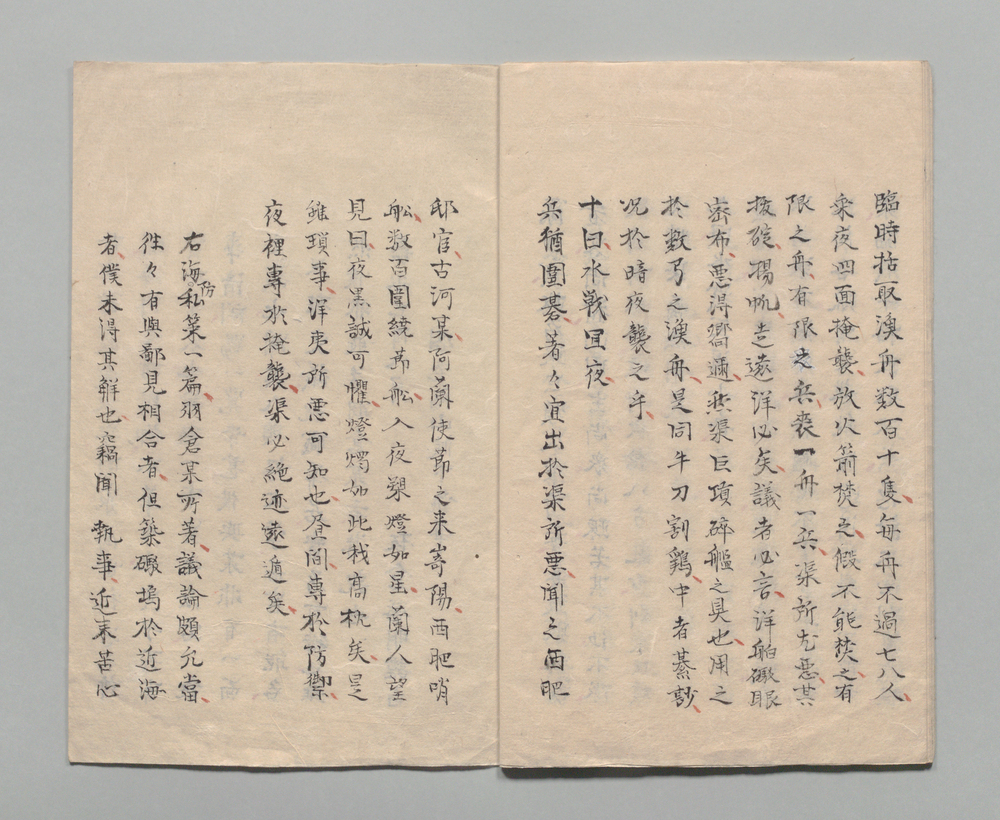 臨時括取漁舟数百十隻每舟不過七八人
乘夜四面掩襲放火箭焚之假不能焚之有
限之舟有限之兵喪一舟一兵渠所尤悪其
拔碇揚帆去遠洋必矣議者必言洋舶礮眼
密布悪得嚮邇然渠巨頂碎艦之具也用之
於数弓之漁舟是同牛刀割鷄中者綦尠
况於暗夜襲之乎
十曰水戦宜夜
兵猶圍碁著々宜出於渠所悪聞之西肥
邸官古河某阿蘭使節之来嵜陽西肥哨
舩数百圍繞節舩入夜槊燈如星蘭人望
見曰夜黒誠可懼燈燭如此我高枕矣是
雖瑣事洋夷所悪可知也昼間専於防禦
夜裡専於掩襲渠必絶迹遠遁矣
右海防私策一篇羽倉某所著議論頗允當
徃々有與鄙見相合者但築礮塢於近海
者僕未得其解也竊聞執事近来苦心